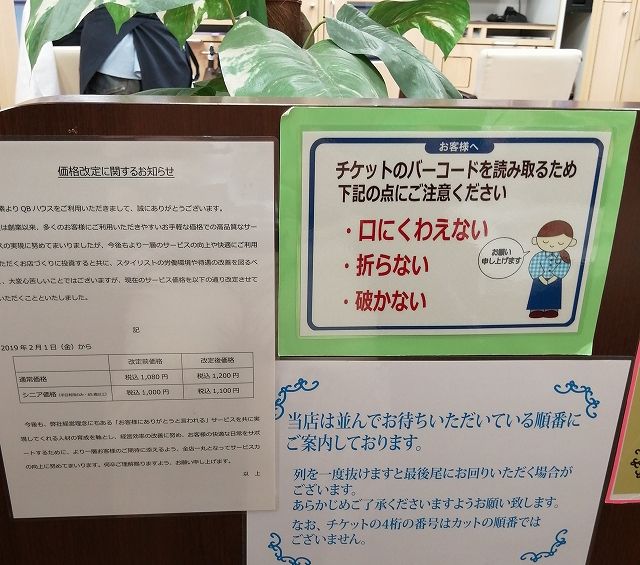 価格改定に関するお知らせ
素よりQBハウスをご利用いただきまして、誠にありがとうございます。
は創業以来、多くのお客様にご利用いただきやすいお手軽な価格での高品質なサー
スの実現に努めてまいりましたが、今後もより一層のサービスの向上や快適にご利用
ただくお店づくりに投資すると共に、スタイリストの労働環境や待遇の改善を図るべ
、大変心苦しいことではございますが、現在のサービス価格を以下の通り改定させて
いただくことといたしました。
記
2019年2月1日(金)から
改定前価格 改定後価格
通常価格 税込1,080円 税込1,200円
シニア価格 税込1,000円 税込1,100円
今後も、弊社経営理念にもある「お客様にありがとうと言われる」サービスを共に実
現してくれる人材の育成を軸とし、経営効率の改善に努め、お客様の快適な日常をサポ
ートするために、より一層お客様のご期待に添えるよう、全店一丸となってサービス力
の向上に努めてまいります。何卒ご理解賜りますよう、お願い申し上げます。
以上
お客様へ
チケットのバーコードを読み取るため
下記の点にご注意ください
・口にくわえない
・折らない
・破かない
お願い
申し上げます
当店は並んでお待ちいただいている順番に
ご案内しております。
列を一度抜けますと最後尾にお回りいただく場合が
ございます。
あらかじめご了承くださいますようお願い致します。
なお、チケットの4桁の番号はカットの順番では
ございません。